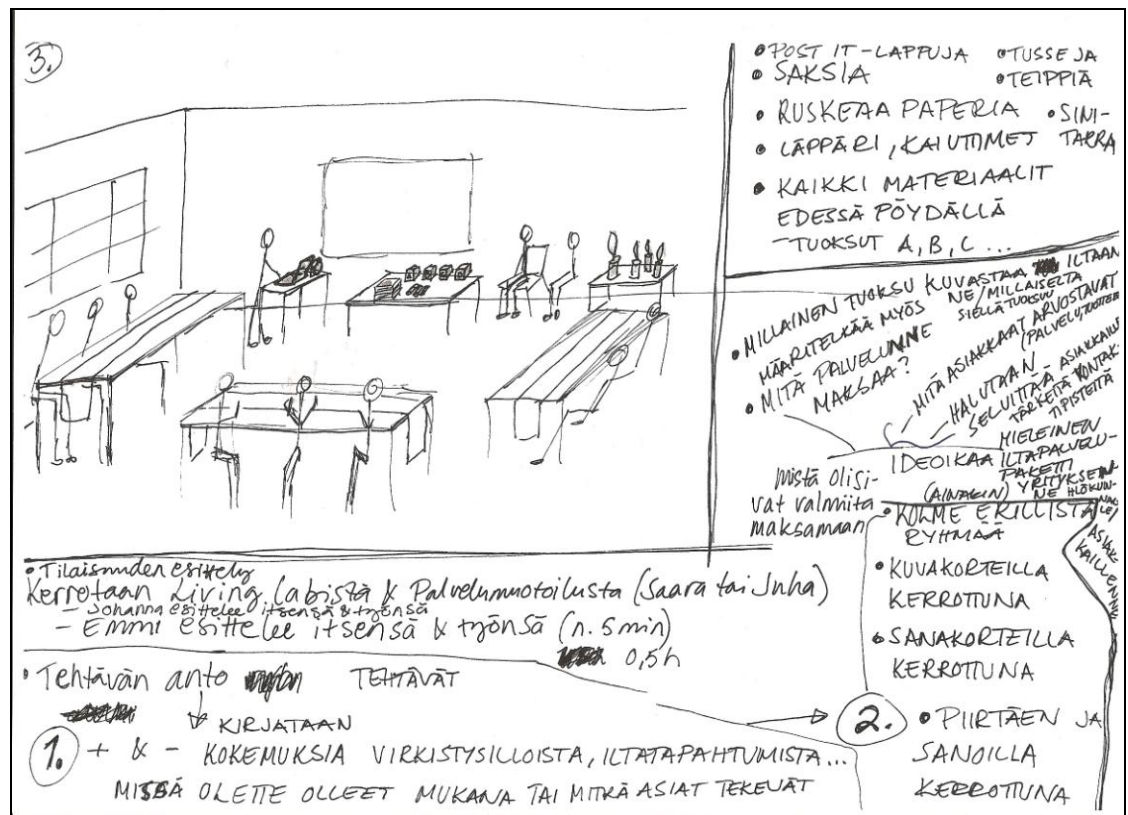 3.
• POST IT -LAPPUJA • TUSSEJA
• SAKSIA • TEIPPIÄ
• RUSKEAA PAPERIA • SINI-
TARRA
• LÄPPÄRI, KAIUTTIMET
• KAIKKI MATERIAALIT
EDESSÄ PÖYDÄLLÄ
- TUOKSUT A, B, C ...
• MILLAINEN TUOKSU KUVASTAA ILTAAN
NE / MILLAISELTA
SIELLÄ TUOKSUU
MÄÄRITELKÄÄ MYÖS
• MITÄ PALVELUNNE
MAKSAA?
MITÄ ASIAKKAAT ARVOSTAVAT
HALUTAAN
SELVITTÄÄ ASIAKKAILLE
TÄRKEITÄ KONTAK-
TIPISTEITÄ
IDEOIKAA MIELEINEN
ILTAPALVELU-
PAKETTI
(AINAKIN) YRITYKSEN
mistä olisi-
vat valmiita
maksamaan
• KOLME ERILLISTÄ
RYHMÄÄ
ASIAK
KAILLENNE
• KUVAKORTEILLA
KERROTTUNA
• SANAKORTEILLA
KERROTTUNA
2. • PIIRTÄEN JA
SANOILLA
KERROTTUNA
• Tilaisuuden esittely
Kerrotaan Living Labistä & Palvelumuotoilusta (Saara tai Juha)
- Johanna esittelee itsensä & työnsä
- Emmi esittelee itsensä & työnsä (n. 5 min)
0,5h
• Tehtävän anto TEHTÄVÄT
KIRJATAAN
1. + & - KOKEMUKSIA VIRKISTYSILLOISTA, ILTATAPAHTUMISTA...
MISSÄ OLETTE OLLEET MUKANA TAI MITKÄ ASIAT TEKEVÄT